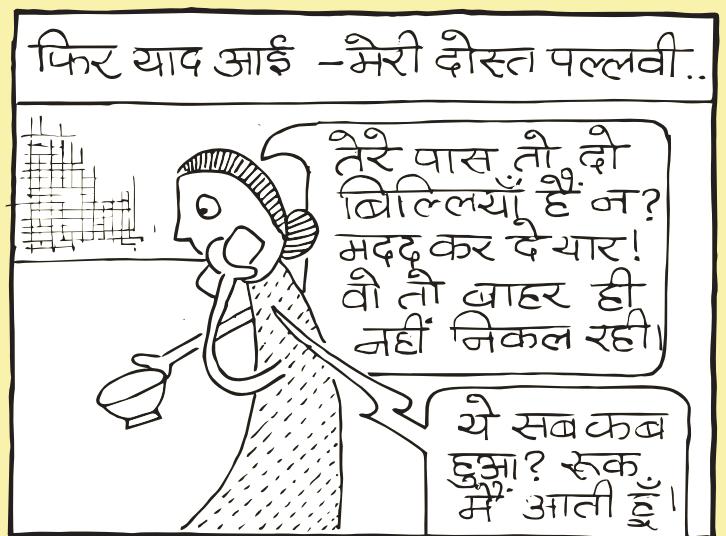 फिर याद आई - मेरी दोस्त पल्लवी..
तेरे पास तो दो
बिल्लियाँ हैं न?
मदद कर दे यार!
वो तो बाहर ही
नहीं निकल रही।
ये सब कब
हुआ? रूक
मैं आती हूँ।